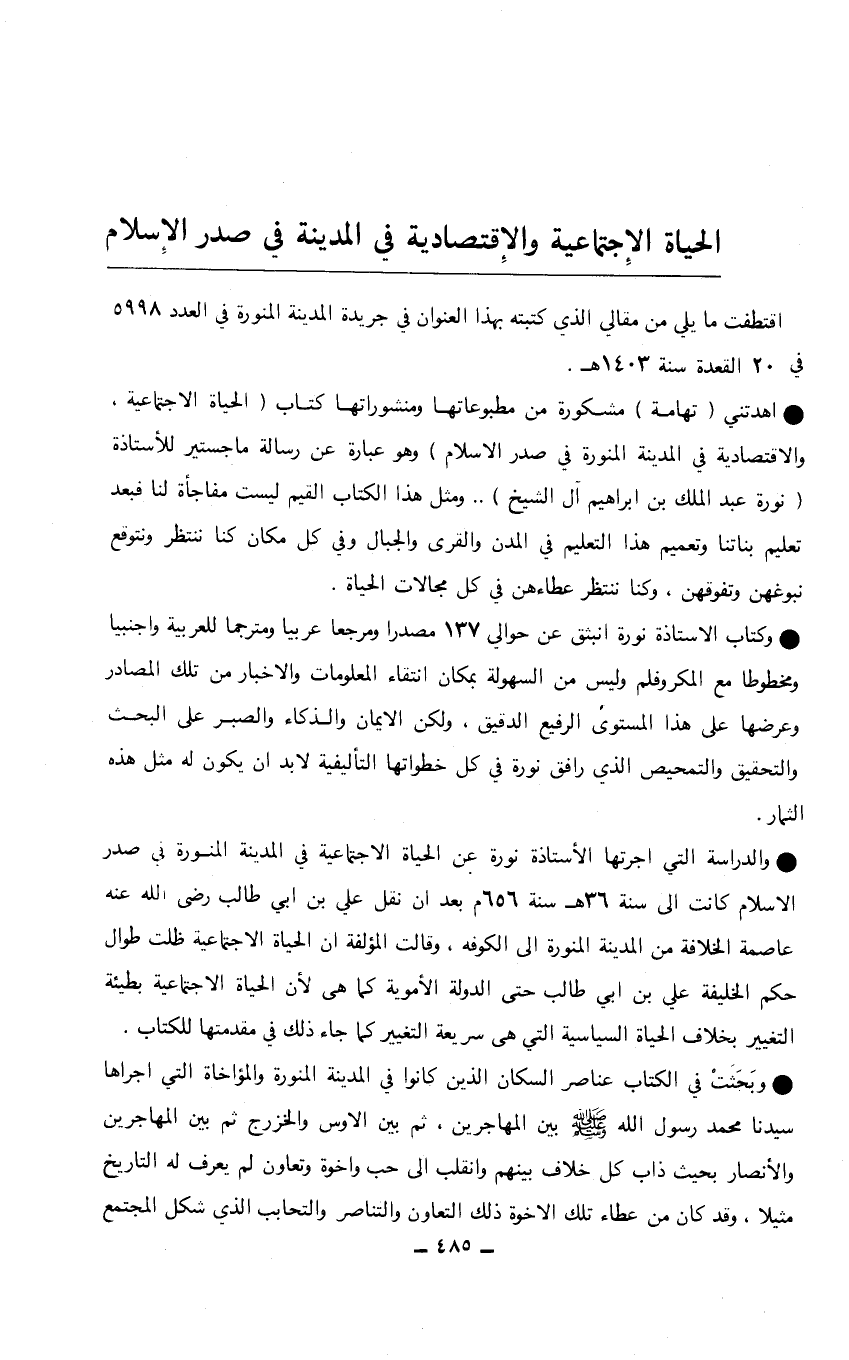 الحياة الإجتماعية والإقتصادية في المدينة في صدر الإسلام
اقتطفت ما يلي من مقالي الذي كتبته بهذا العنوان في جريدة المدينة المنورة في العدد ٥٩٩٨
في ٢٠ القعدة سنة ١٤٠٣هـ .
● اهدتني ( تهامة ) مشكورة من مطبوعاتها ومنشوراتها كتاب ( الحياة الاجتماعية ،
والاقتصادية في المدينة المنورة في صدر الاسلام ) وهو عبارة عن رسالة ماجستير للأستاذة
( نورة عبد الملك بن ابراهيم آل الشيخ ) .. ومثل هذا الكتاب القيم ليست مفاجأة لنا فبعد
تعليم بناتنا وتعميم هذا التعليم في المدن والقرى والجبال وفي كل مكان كنا ننتظر ونتوقع
نبوغهن وتفوقهن ، وكنا ننتظر عطاءهن في كل مجالات الحياة .
● وكتاب الاستاذة نورة انبثق عن حوالي ١٣٧ مصدرا ومرجعا عربيا ومترجما للعربية واجنبيا
ومخطوطا مع المكروفلم وليس من السهولة بمكان انتقاء المعلومات والاخبار من تلك المصادر
وعرضها على هذا المستوىُ الرفيع الدقيق ، ولكن الايمان والذكاء والصبر على البحث
والتحقيق والتمحيص الذي رافق نورة في كل خطواتها التأليفية لابد ان يكون له مثل هذه
الثمار .
● والدراسة التي اجرتها الأستاذة نورة عن الحياة الاجتماعية في المدينة المنورة في صدر
الاسلام كانت الى سنة ٣٦هـ سنة ٦٥٦م بعد ان نقل علي بن ابي طالب رضى الله عنه
عاصمة الخلافة من المدينة المنورة الى الكوفه ، وقالت المؤلفة ان الحياة الاجتماعية ظلت طوال
حكم الخليفة علي بن ابي طالب حتى الدولة الأموية كما هى لأن الحياة الاجتماعية بطيئة
التغيير بخلاف الحياة السياسية التي هى سريعة التغيير كما جاء ذلك في مقدمتها للكتاب .
● وبَحَثَتْ في الكتاب عناصر السكان الذين كانوا في المدينة المنورة والمؤاخاة التي اجراها
سيدنا محمد رسول الله ﷺ بين المهاجرين ، ثم بين الاوس والخزرج ثم بين المهاجرين
والأنصار بحيث ذاب كل خلاف بينهم وانقلب الى حب واخوة وتعاون لم يعرف له التاريخ
مثيلا ، وقد كان من عطاء تلك الاخوة ذلك التعاون والتناصر والتحابب الذي شكل المجتمع
ـ ٤٨٥ ـ